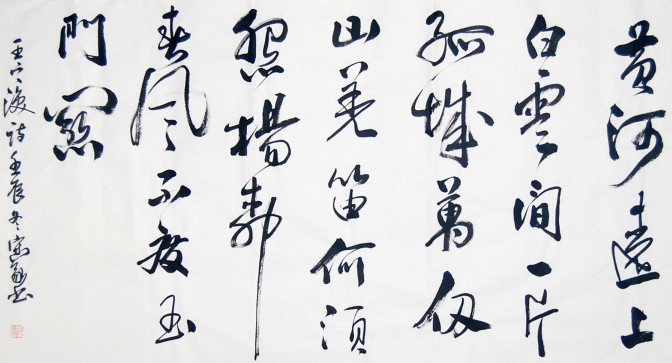 黄河遠上
白雲间一片
孤城萬仭
山羌笛何須
怨楊柳
春風不度玉
門關
王之渙詩壬辰冬